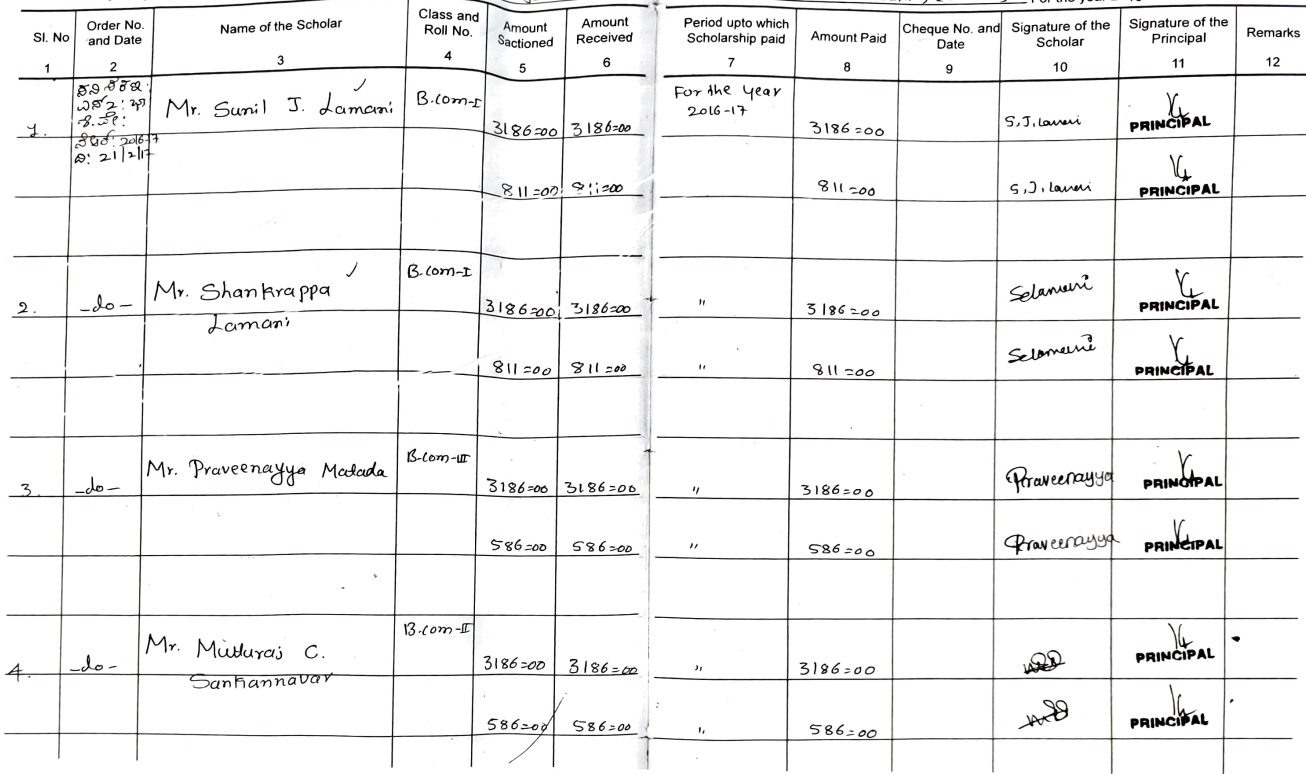 For the year
Sl. No | Order No. and Date | Name of the Scholar | Class and Roll No. | Amount Sactioned | Amount Received | Period upto which Scholarship paid | Amount Paid | Cheque No. and Date | Signature of the Scholar | Signature of the Principal | Remarks
1 | 2 | 3 | 4 | 5 | 6 | 7 | 8 | 9 | 10 | 11 | 12
1. | 2016-17 21/2/17 | Mr. Sunil J. Lamani | B.com-I | 3186=00 | 3186=00 | For the year 2016-17 | 3186=00 | S.J.Lamani | PRINCIPAL
811=00 | 811=00 | 811=00 | S.J.Lamani | PRINCIPAL
2. | -do- | Mr. Shankrappa Lamani | B.com-I | 3186=00 | 3186=00 | " | 3186=00 | PRINCIPAL
811=00 | 811=00 | " | 811=00 | PRINCIPAL
3. | -do- | Mr. Praveenayya Matada | B.com-III | 3186=00 | 3186=00 | " | 3186=00 | Praveenayya | PRINCIPAL
586=00 | 586=00 | " | 586=00 | Praveenayya | PRINCIPAL
4. | -do- | Mr. Mutturaj C. Sankannavar | B.com-II | 3186=00 | 3186=00 | " | 3186=00 | PRINCIPAL
586=00 | 586=00 | " | 586=00 | PRINCIPAL